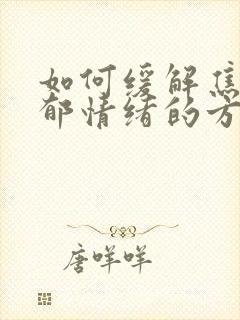 如何缓解焦
郁情绪的方
唐咩咩